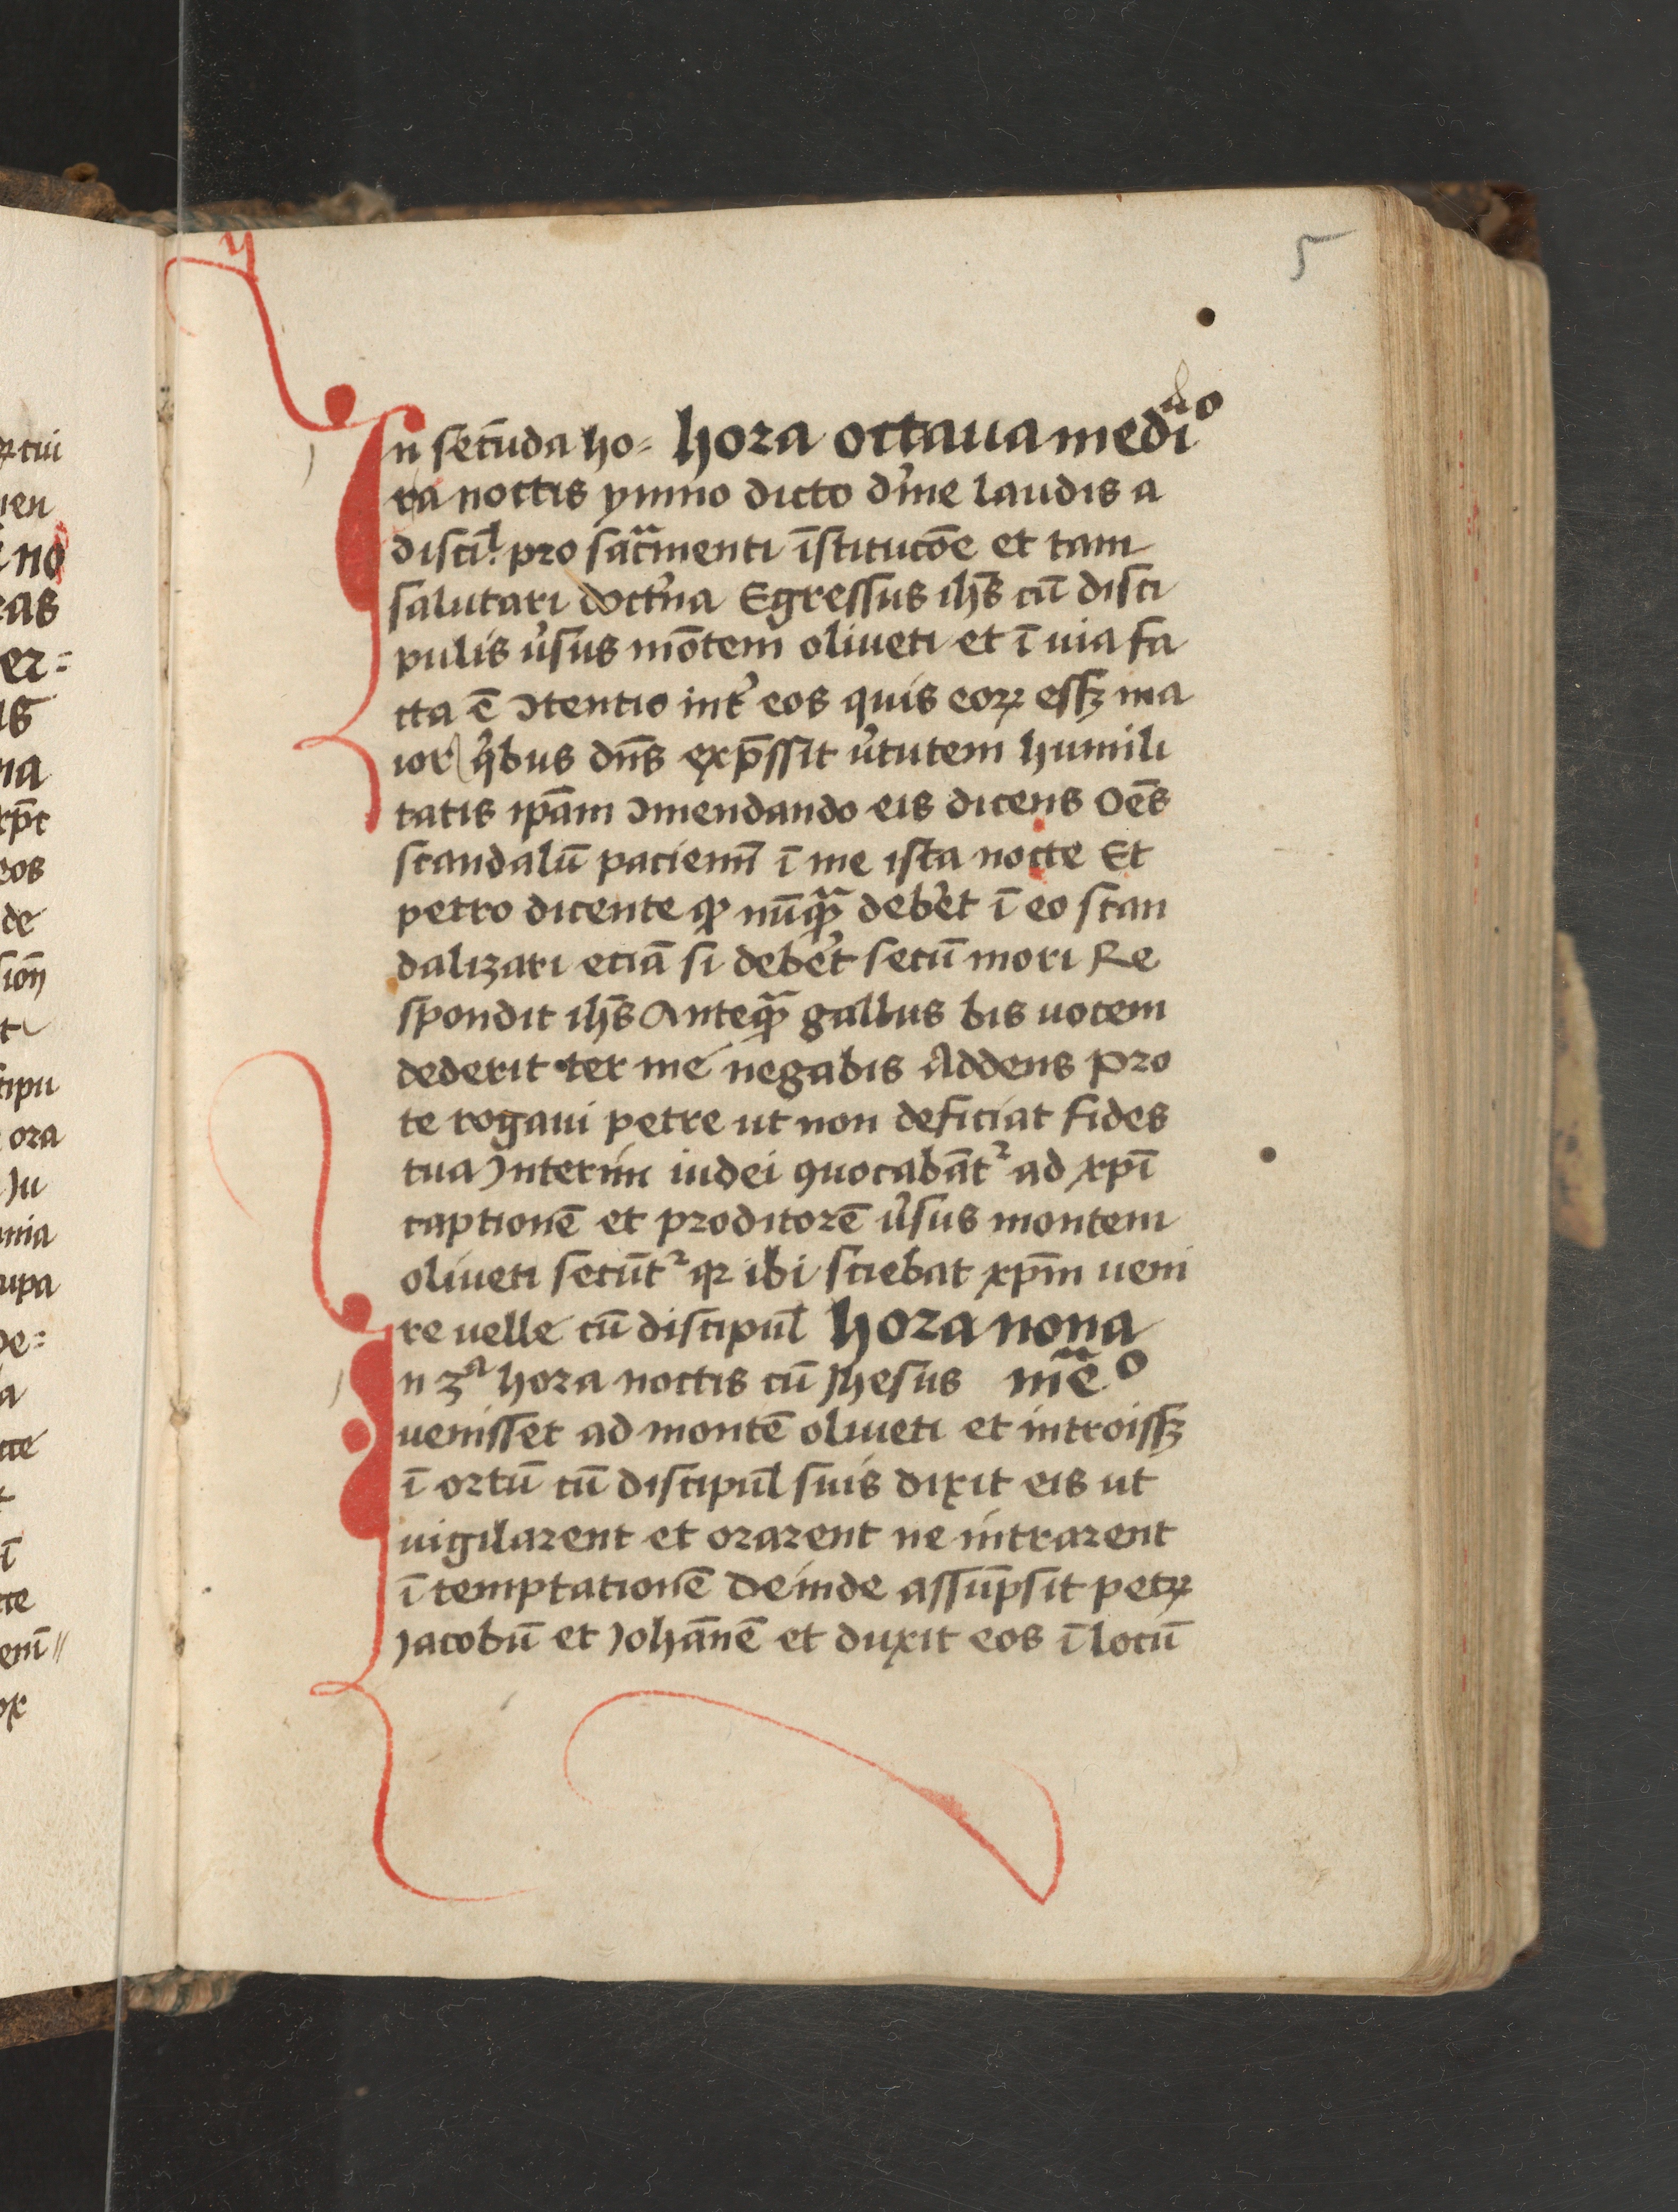 5
In secūda ho= hora octaua medi᷑o
ra noctis ymno dicto d'me laudis a
discil' pro sac͞menti īstitucōe et tam
salutari doct'na Egressus ihs̄ cū disci
pulis u'sus mōtem oliueti et ī uia fa
cta ē ɔtentio int' eos quis eoꝝ essꝫ ma
ior q'bus dn̄s exp̄ssit u'tutem humili
tatis ip̄am ɔmendando eis dicens Oēs
scandalū paciemī ī me ista nocte Et
petro dicente ꝙ nūqᷓ deb'et ī eo scan
dalizari eciā si deb'et secū mori Re
spondit ihs̄ Anteqᷓ gallus bis uocem
dederit ter me negabis Addens Pro
te rogaui petre ut non deficiat fides
tua Interim iudei ꝯuocabāt᷑ ad xp̄i
captionē et proditorē u'sus montem
oliueti secūt᷑ qꝛ ibi sciebat xp̄m ueni
re uelle cū discipul̄ hora nona
In 3ᵃ hora noctis cū Jhesus mēᵒ
uenisset ad montē oliueti et introissꝫ
ī ortū cū discipul̄ suis dixit eis ut
uigilarent et orarent ne intrarent
ī temptationē Deinde assūpsit petꝝ
Jacobū et Johānē et duxit eos ī locū